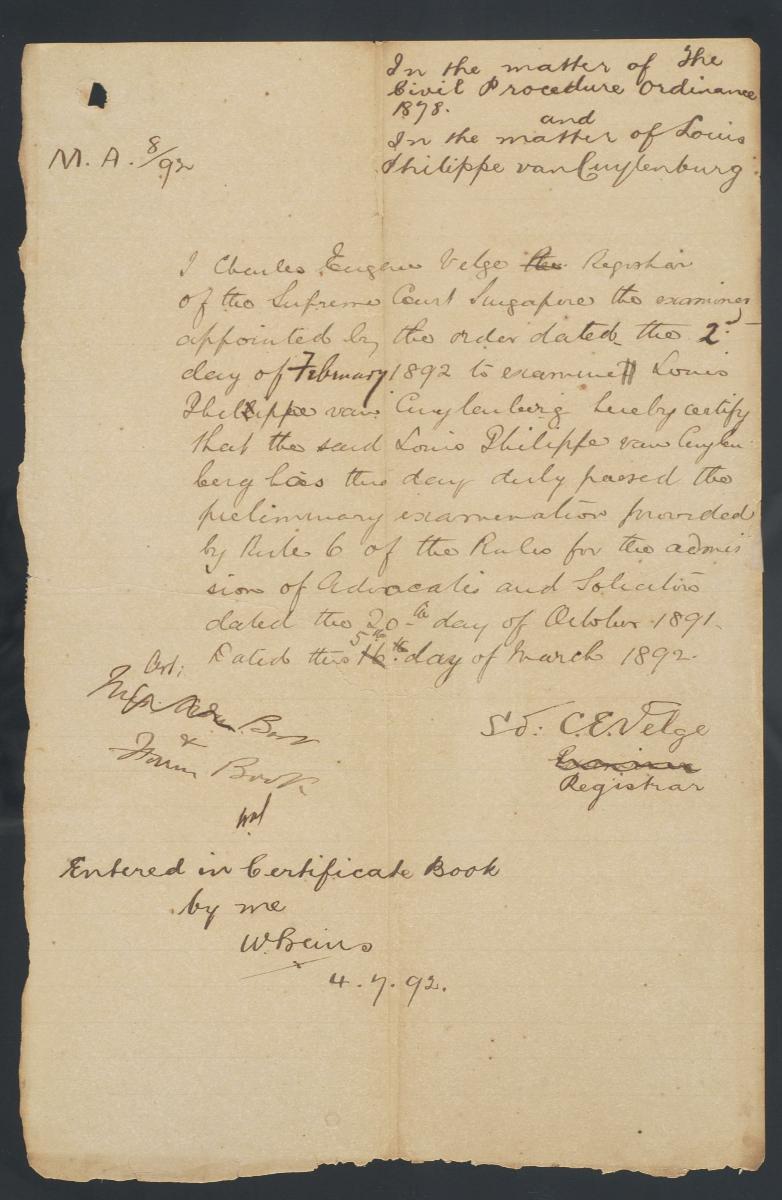 In the matter of The
Civil Procedure Ordinance
1878.
and
In the matter of Louis
Philippe van Cuylenburg
M. A. 8/92
I Charles Eugene Velge the Registrar
of the Supreme Court Singapore the examiner
appointed by the order dated the 2d
day of February 1892 to examine Louis
Philippe van Cuylenberg hereby certify
that the said Louis Philippe van Cuylen
berg has this day duly passed the
preliminary examination provided
by Rule 6 of the Rules for the admis
sion of Advocates and Solicitors
dated the 20th day of October 1891.
Dated this 5th 16th day of March 1892.
Cert:
Book
&
Book
Sd: C.E. Velge
Examiner
Registrar
Entered in Certificate Book
by me
4.7.92.